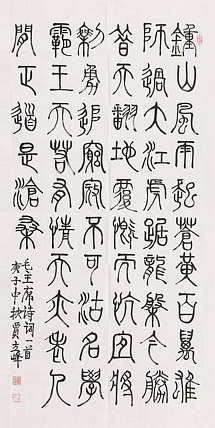 鍾山風雨起蒼黃百萬雄
師過大江虎踞龍盤今勝
昔天翻地覆慨而慷宜將
剩勇追窮寇不可沽名學
霸王天若有情天亦老人
間正道是滄桑
毛主席诗词一首
庚子中秋